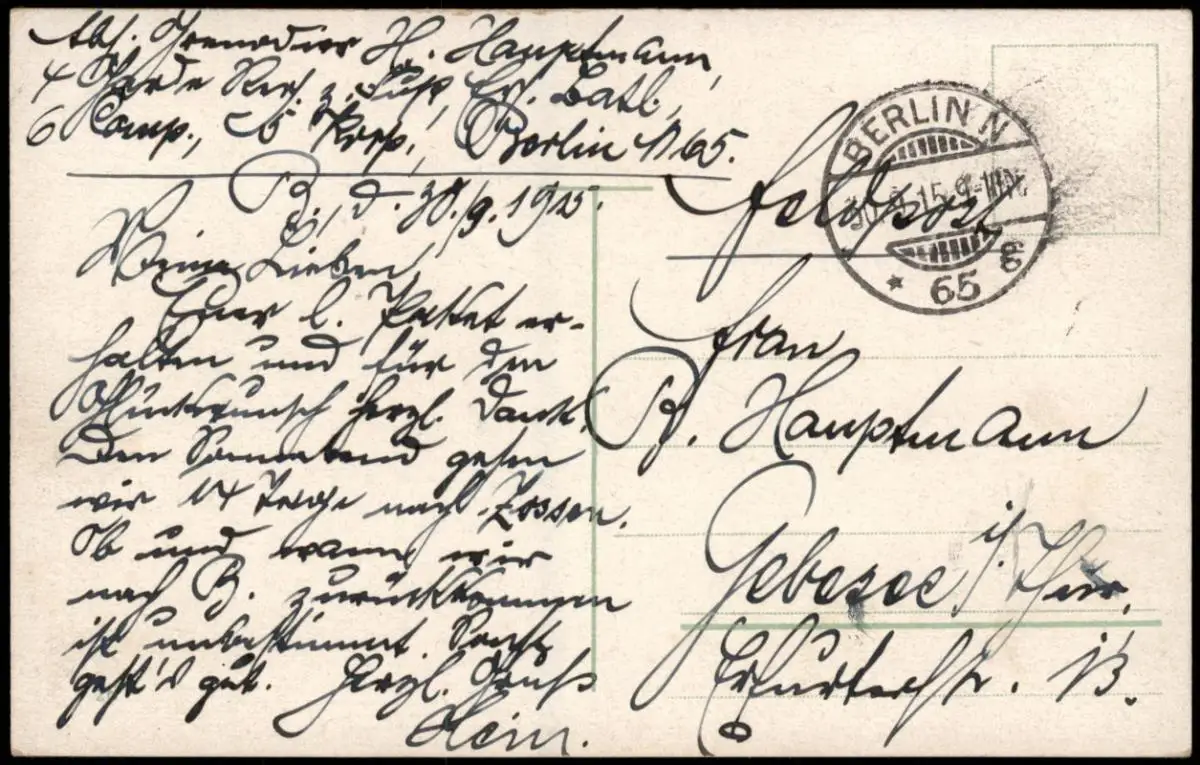 Abs. Grenadier H. Hauptmann,
4 Garde Res. z. Fuß, Ers. Batl.,
6 Comp., Berlin N 65.
B., d. 30./9. 1915.
Meine Lieben,
Euer l. Paket er-
halten und für den
Glückwunsch herzl. Dank.
Den Sonnabend gehen
wir 14 Tage nach Zossen.
Ob und wann wir
nach B. zurückkommen
ist unbestimmt. Sonst
geht's gut. Herzl. Gruß
Hein.
Feldpost
BERLIN N
65
Frau
B. Hauptmann
Gebesee i/Thür.
Erfurterstr. 13.